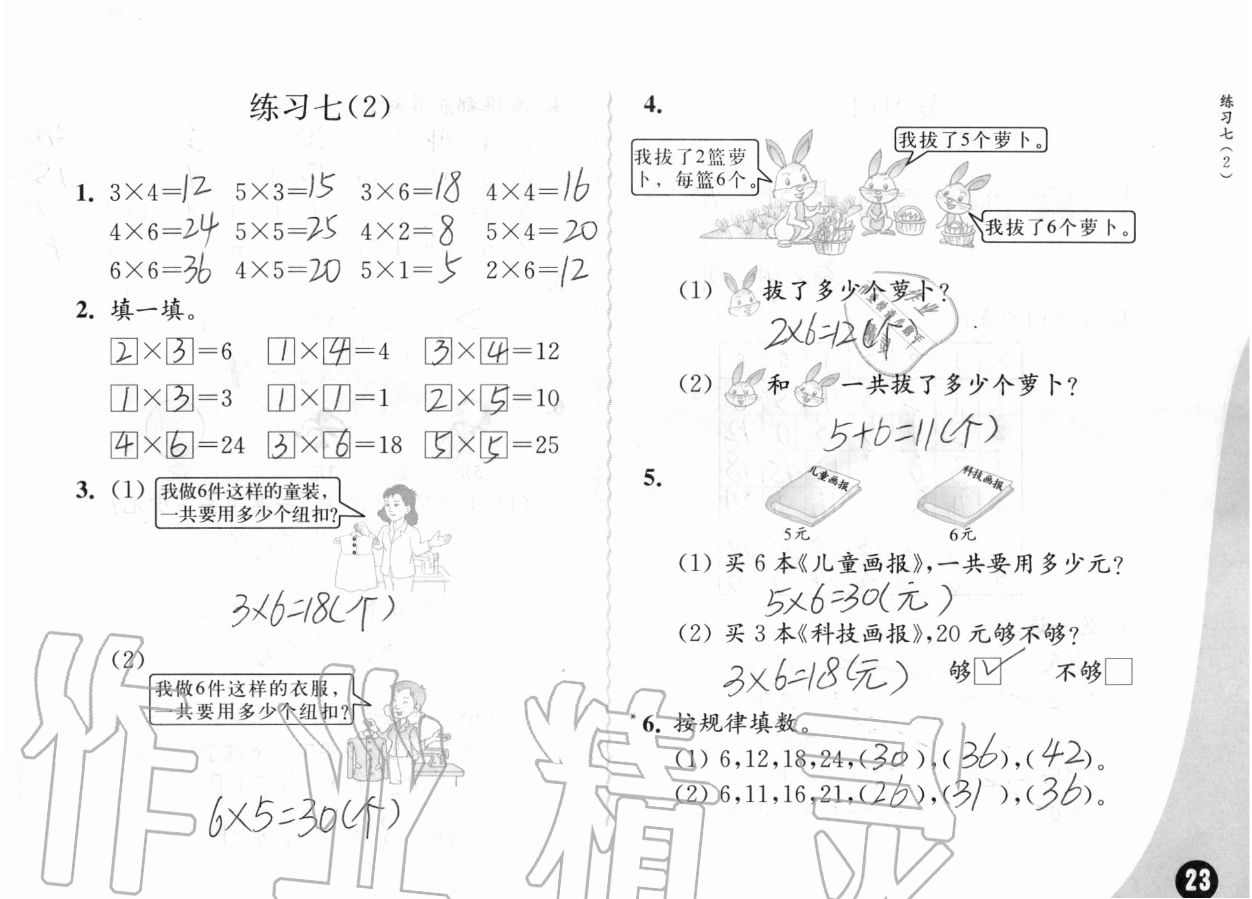 练习七(2)
1. 3×4=12 5×3=15 3×6=18 4×4=16
4×6=24 5×5=25 4×2=8 5×4=20
6×6=36 4×5=20 5×1=5 2×6=12
2. 填一填。
2×3=6 1×4=4 3×4=12
1×3=3 1×1=1 2×5=10
4×6=24 3×6=18 5×5=25
3. (1) 我做6件这样的童装,
一共要用多少个纽扣?
3×6=18(个)
(2)
我做6件这样的衣服,
一共要用多少个纽扣?
6×5=30(个)
4.
我拔了2篮萝
卜，每篮6个。
我拔了5个萝卜。
我拔了6个萝卜。
(1) 拔了多少个萝卜?
2×6=12(个)
(2) 和 一共拔了多少个萝卜?
5+6=11(个)
5.
儿童画报 科技画报
5元 6元
(1) 买6本《儿童画报》,一共要用多少元?
5×6=30(元)
(2) 买3本《科技画报》,20元够不够?
3×6=18(元) 够✓ 不够
*6. 按规律填数。
(1) 6,12,18,24,(30),(36),(42)。
(2) 6,11,16,21,(26),(31),(36)。
练习七(2)
23
作业精灵